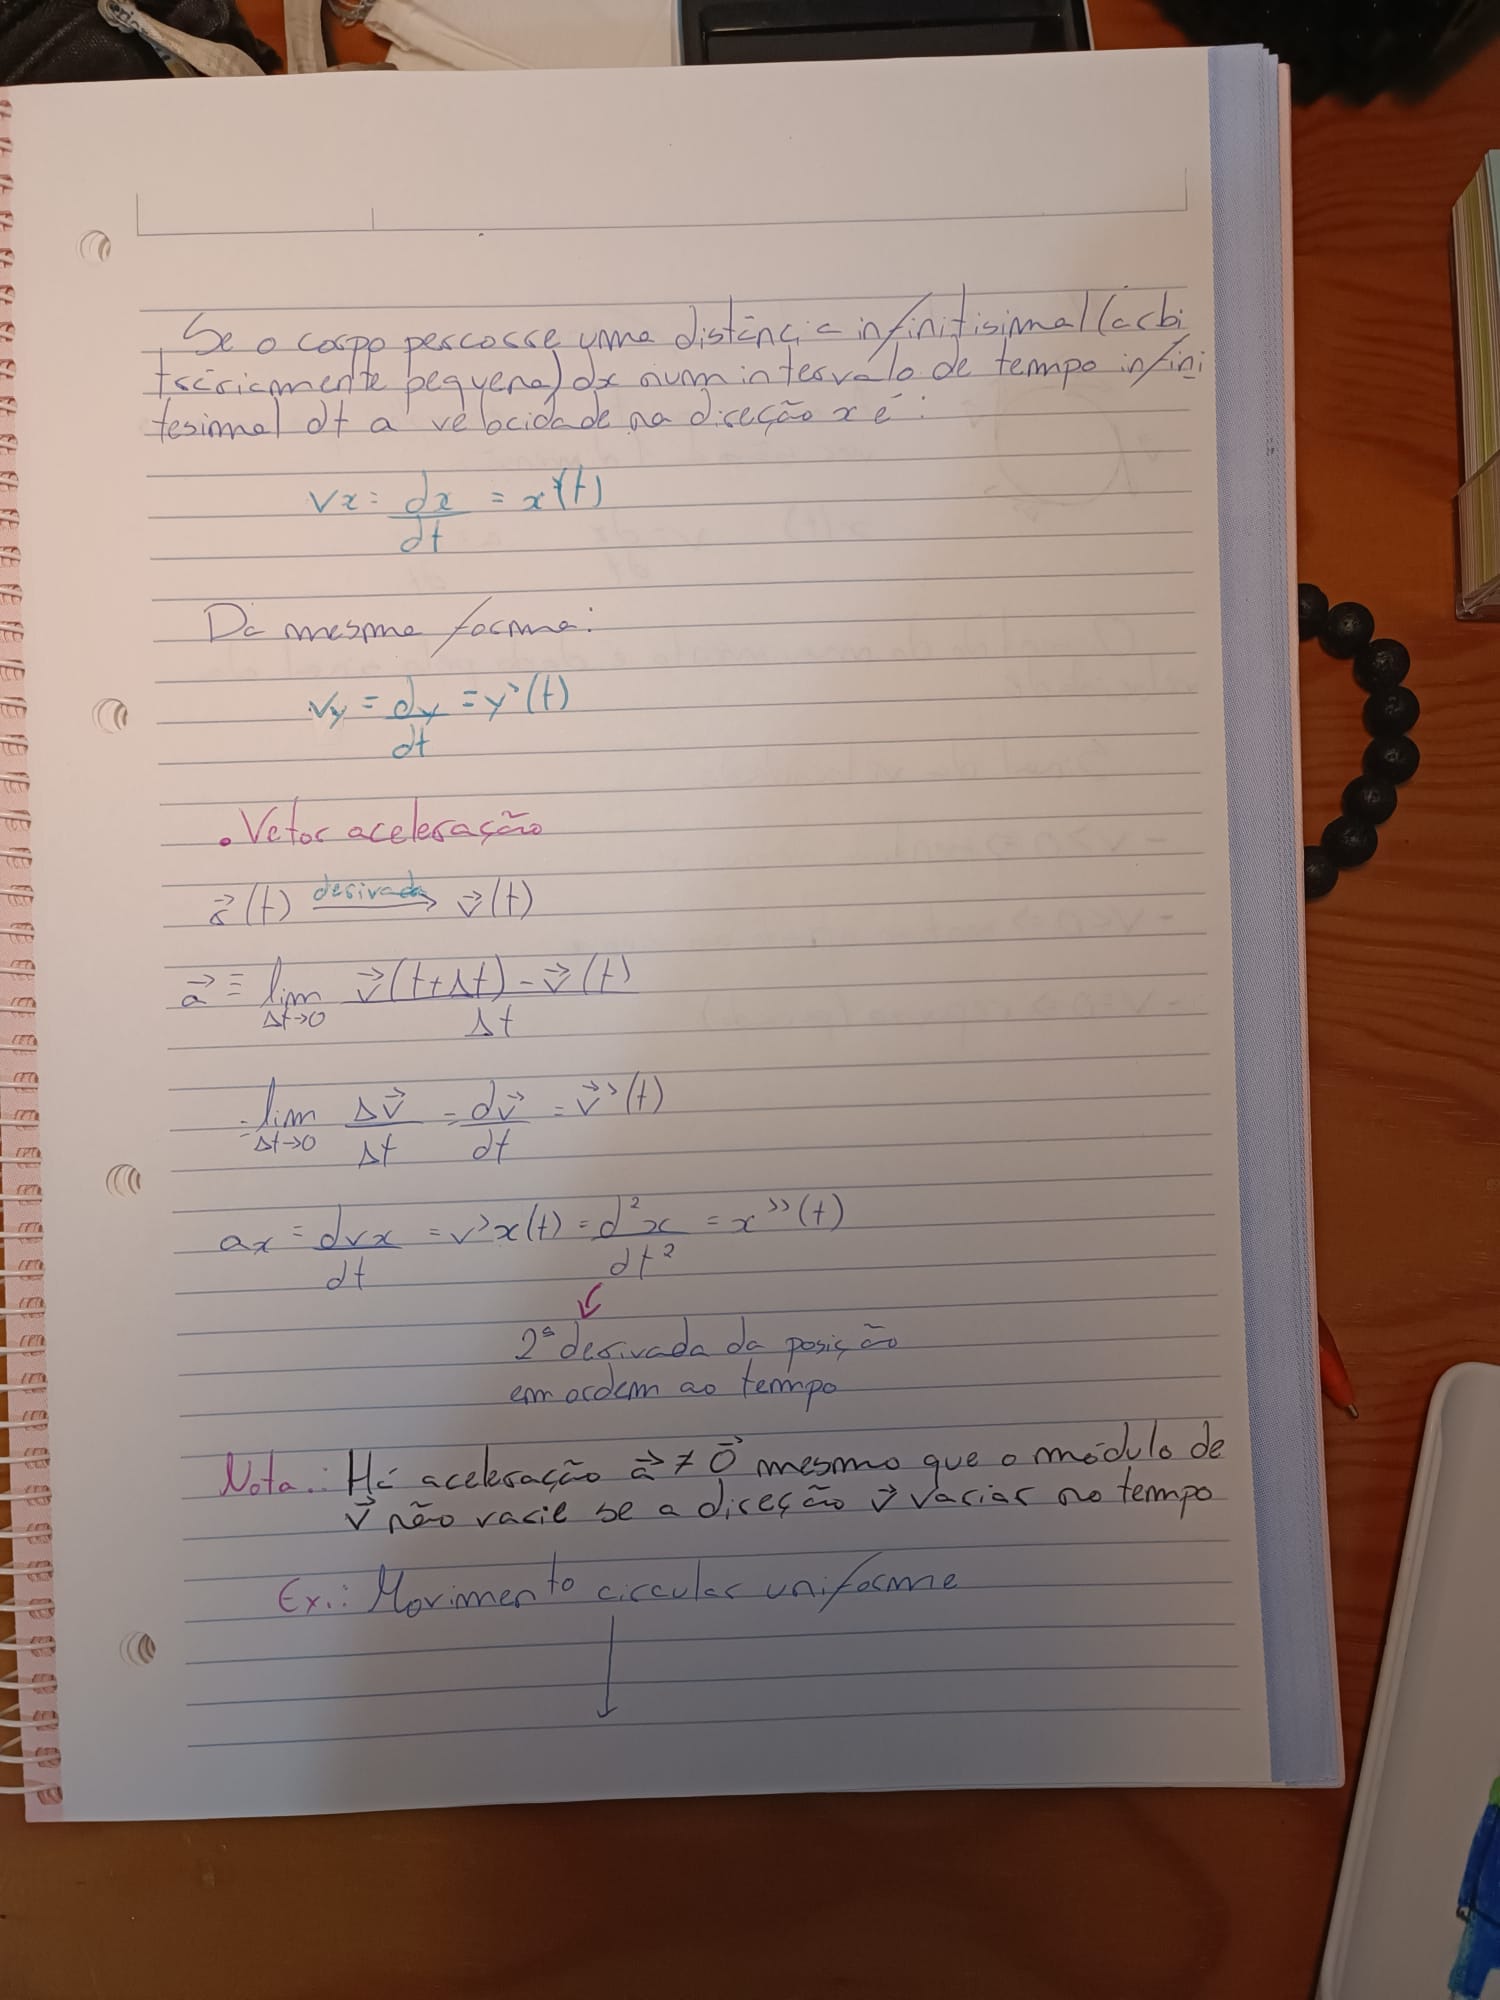 Se o corpo percorre uma distância infinitisimal (arbi
trariamente pequena) dx num intervalo de tempo infini
tesimal dt a velocidade na direção x é:
vx = dx/dt = x'(t)
Da mesma forma:
vy = dy/dt = y'(t)
• Vetor aceleração
r⃗(t) derivada → v⃗(t)
a⃗ ≡ lim Δt→0 (v⃗(t+Δt) - v⃗(t))/Δt
= lim Δt→0 Δv⃗/Δt = dv⃗/dt = v⃗'(t)
ax = dvx/dt = v'x(t) = d²x/dt² = x''(t)
2ª derivada da posição
em ordem ao tempo
Nota.: Há aceleração a⃗ ≠ 0⃗ mesmo que o módulo de
v⃗ não varie se a direção v⃗ variar no tempo
Ex.: Movimento circular uniforme